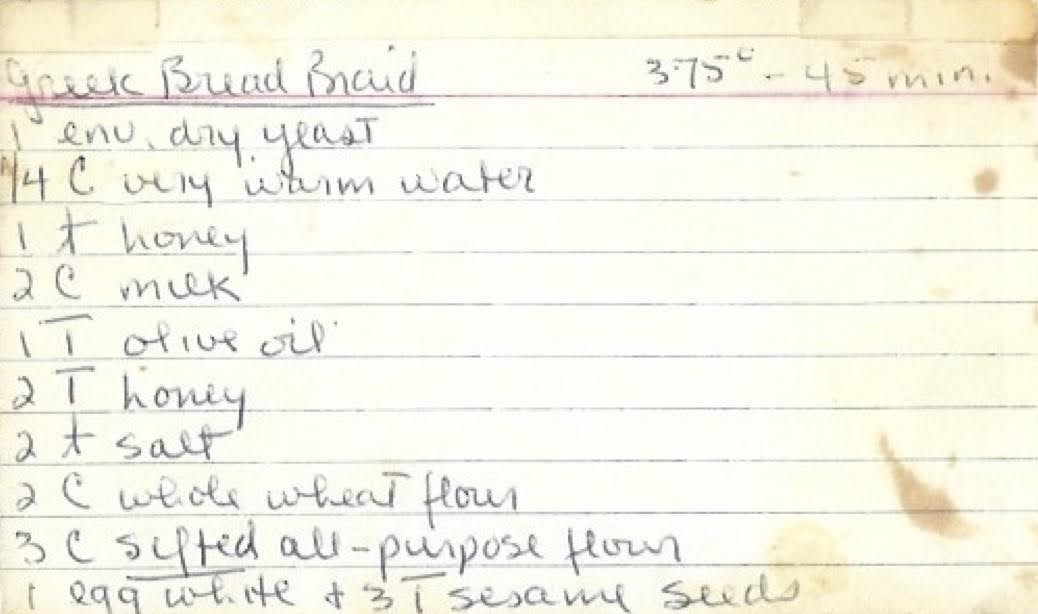 Greek Bread Braid 375° - 45 min.
1 env. dry yeast
1/4 C very warm water
1 t honey
2 C milk
1 T olive oil
2 T honey
2 t salt
2 C whole wheat flour
3 C sifted all-purpose flour
1 egg white + 3 T sesame seeds